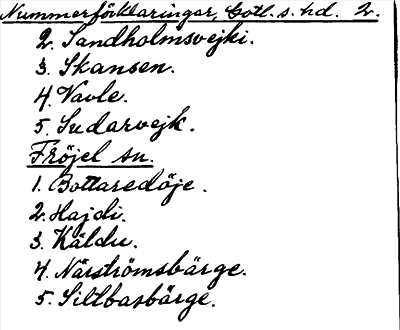 Nummerförklaringar, Gotl. s. hd. 2.
2. Sandholmsvejki.
3. Skansen.
4. Vavle.
5. Sudarvejk.
Fröjel sn.
1. Bottaredöje.
2. Hajdi.
3. Käldu.
4. Närströmsbärge.
5. Siltbasbärge.